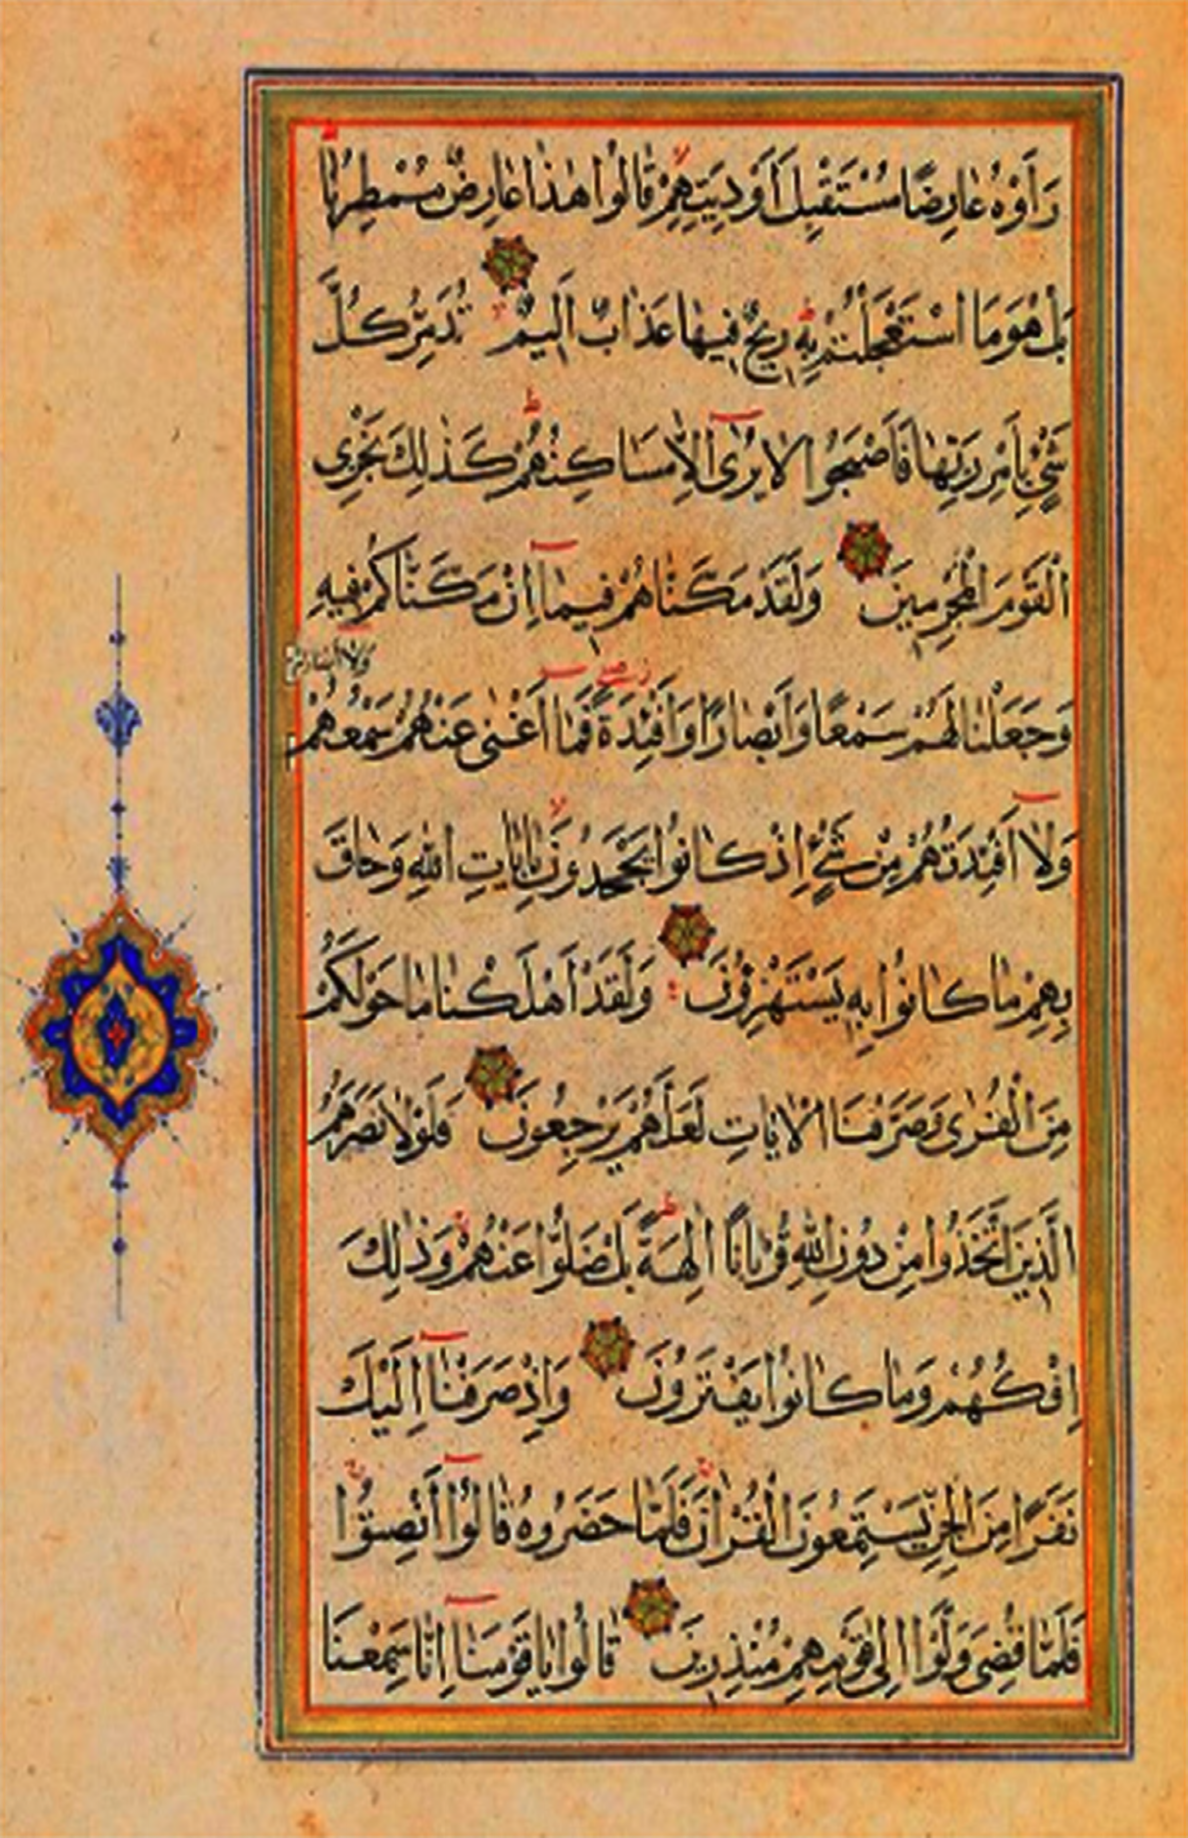 رَأَوْهُ عَارِضًا مُسْتَقْبِلَ أَوْدِيَتِهِمْ قَالُوا هٰذَا عَارِضٌ مُمْطِرُنَا
بَلْ هُوَ مَا اسْتَعْجَلْتُمْ بِهِ رِيحٌ فِيهَا عَذَابٌ اَلِيمٌ تُدَمِّرُ كُلَّ
شَيْءٍ بِاَمْرِ رَبِّهَا فَاَصْبَحُوا لَا يُرٰى اِلَّا مَسَاكِنُهُمْ كَذٰلِكَ نَجْزِي
الْقَوْمَ الْمُجْرِمِينَ وَلَقَدْ مَكَّنَّاهُمْ فِيمَا اِنْ مَكَّنَّاكُمْ فِيهِ
وَلَا اَبْصَارُهُمْ
وَجَعَلْنَا لَهُمْ سَمْعًا وَاَبْصَارًا وَاَفْئِدَةً فَمَا اَغْنٰى عَنْهُمْ سَمْعُهُمْ
وَلَا اَفْئِدَتُهُمْ مِنْ شَيْءٍ اِذْ كَانُوا يَجْحَدُونَ بِاٰيَاتِ اللهِ وَحَاقَ
بِهِمْ مَا كَانُوا بِهِ يَسْتَهْزِؤُنَ وَلَقَدْ اَهْلَكْنَا مَا حَوْلَكُمْ
مِنَ الْقُرٰى وَصَرَّفْنَا الْاٰيَاتِ لَعَلَّهُمْ يَرْجِعُونَ فَلَوْلَا نَصَرَهُمُ
الَّذِينَ اتَّخَذُوا مِنْ دُونِ اللهِ قُرْبَانًا اٰلِهَةً بَلْ ضَلُّوا عَنْهُمْ وَذٰلِكَ
اِفْكُهُمْ وَمَا كَانُوا يَفْتَرُونَ وَاِذْ صَرَفْنَا اِلَيْكَ
نَفَرًا مِنَ الْجِنِّ يَسْتَمِعُونَ الْقُرْاٰنَ فَلَمَّا حَضَرُوهُ قَالُوا اَنْصِتُوا
فَلَمَّا قُضِيَ وَلَّوْا اِلٰى قَوْمِهِمْ مُنْذِرِينَ قَالُوا يَا قَوْمَنَا اِنَّا سَمِعْنَا